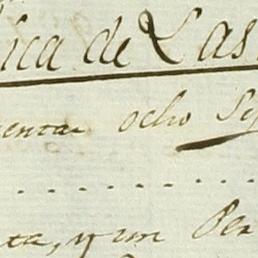 ica de Las
enta ocho Se
ta, y un Per